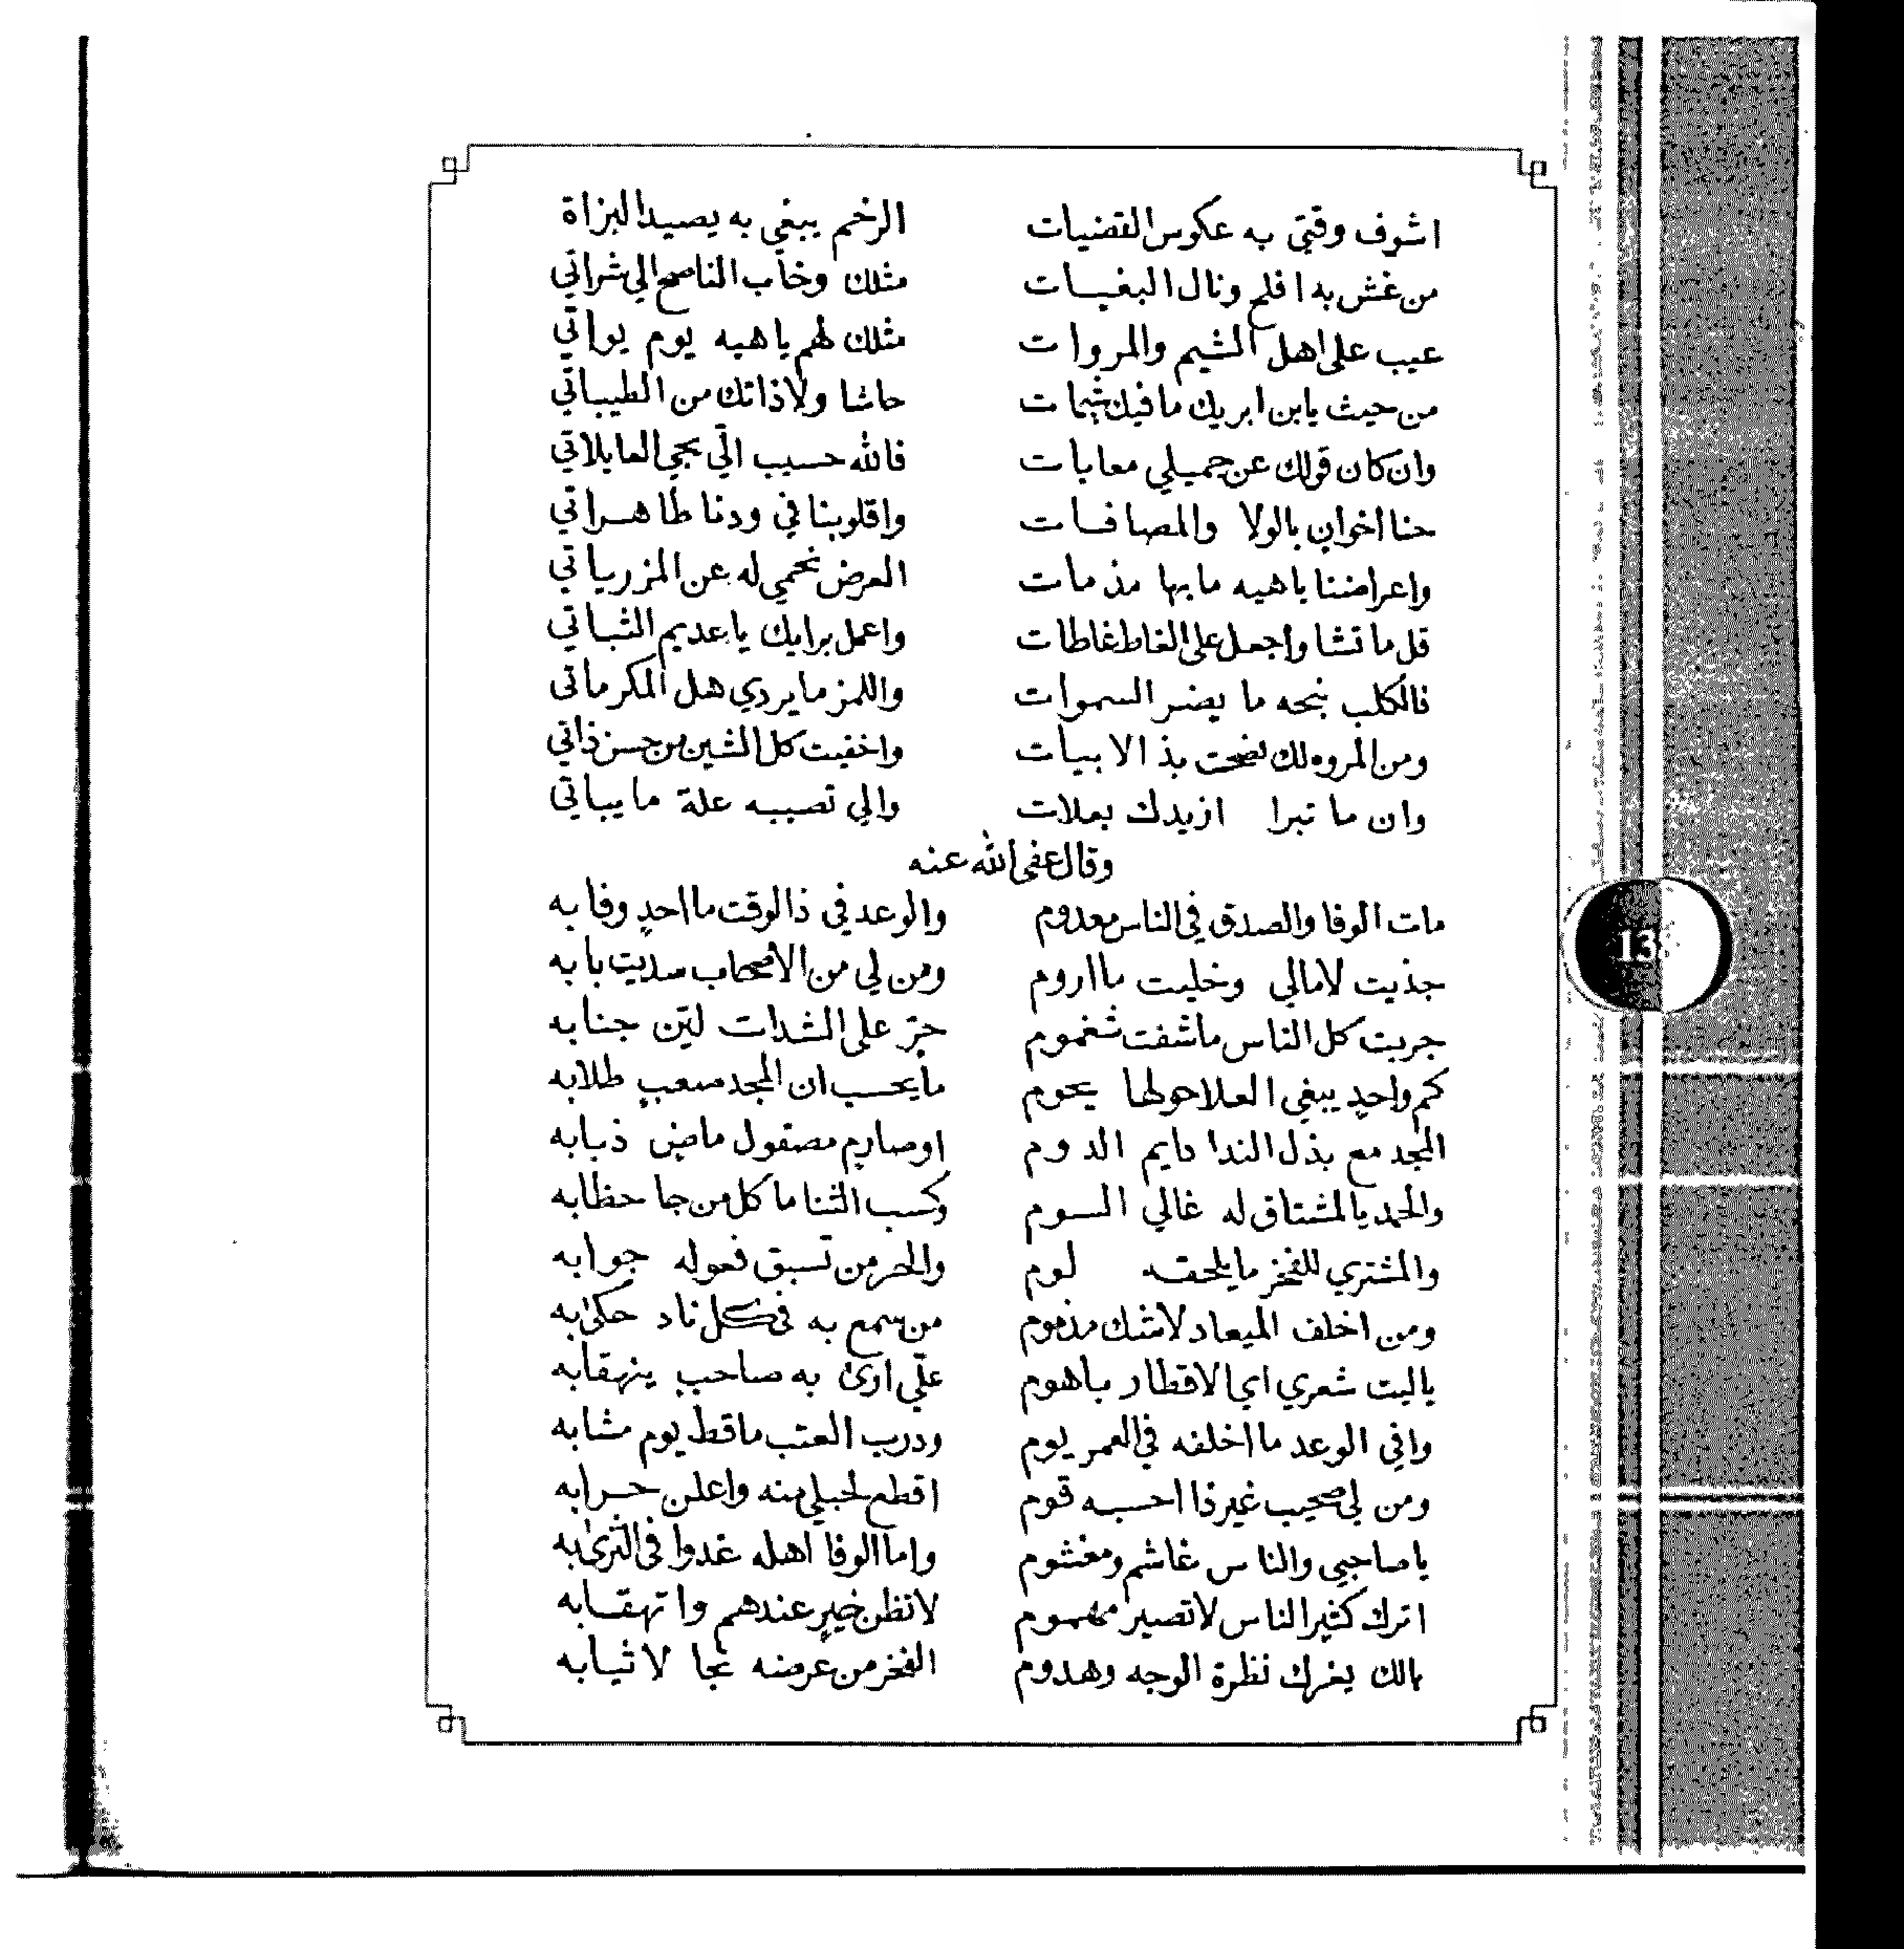 اشوف وقتي به عكوس القضيات الرخم يبغي به يصيد البزاة
من غش به افلح ونال البغيات مثلك وخاب الناصح الي شراتي
عيب على اهل الشيم والمروات مثلك لهم ياهيه يوم يواتي
من حيث يابن ابريك مافيك شيمات حاشا ولاذاتك من الطيباتي
وان كان قولك عن جميلي معابات فالله حسيب الّي يجي العايلاتي
حنا اخوانٍ بالولا والمصافات واقلوبنا في ودنا طاهراتي
واعراضنا ياهيه مابها مذمات العرض نحمي له عن المزرياتي
قل ماتشا واجعل على الغاط غاطات واعمل برايك ياعديم الثباتي
فالكلب نبحه ما يضر السموات واللمز مايردي هل المكرماتي
ومن المروه لك نضحت بذ الابيات واخفيت كل الشين من حسن ذاتي
وان ما تبرا ازيدك بعلات والي تصيبه علة مايباتي
وقال عفى الله عنه
مات الوفا والصدق في الناس معدوم والوعد في ذا الوقت ما احدٍ وفابه
جذيت لامالي وخليت ما اروم ومن لي من الاصحاب سديت بابه
جربت كل الناس ماشفت شغموم حرّ على الشدات ليّن جنابه
كم واحدٍ يبغي العلا حولها يحوم مايحسب ان المجد صعبٍ طلابه
المجد مع بذل الندا دايم الدوم اوصارمٍ مصقول ماضي ذبابه
والحمد يالمشتاق له غالي السوم وكسب الثنا ماكل من جا حظابه
والمشتري للفخر مايلحقه لوم والحر من تسبق فعوله جوابه
ومن اخلف الميعاد لاشك مذموم من سمع به في كل ناد حكى به
ياليت شعري اي الاقطار باهوم علّي ارى به صاحبٍ ينهقابه
وافي الوعد ما اخلفه في العمر يوم ودرب العتب ماقط يوم مشابه
ومن لي صحيب غير ذا احسبه قوم اقطع لحبلي منه واعلن حرابه
ياصاحبي والناس غاشم ومغشوم واما الوفا اهله غدوا في الثرى به
اترك كثير الناس لاتصير مهموم لاتظن خيرٍ عندهم واتهقابه
مالك يغرك نظرة الوجه وهدوم الفخر من عرضه نجا لاثيابه
13